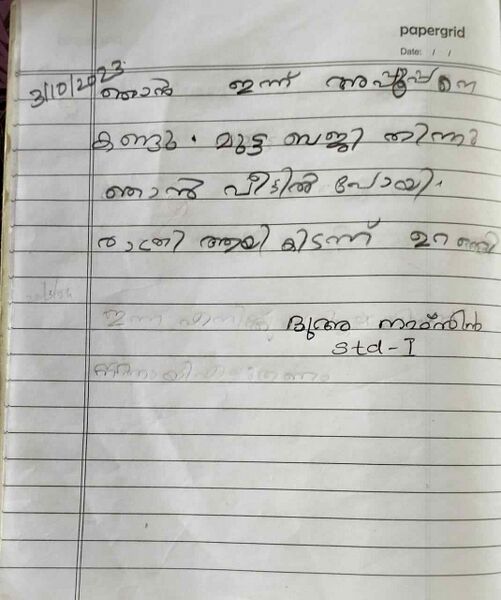 papergrid
Date: / /
3/10/2023
ഞാൻ ഇന്ന് അപ്പൂപ്പനെ
കണ്ടു. മുട്ട ബജ്ജി തിന്നു
ഞാൻ വീട്ടിൽ പോയി.
രാത്രി ആയി കിടന്ന് ഉറങ്ങി
ദുആ നാസ്നിൻ
std-I